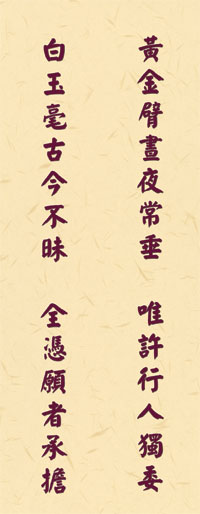 黃金臂晝夜常垂　唯許行人獨委
白玉毫古今不昧　全憑願者承擔